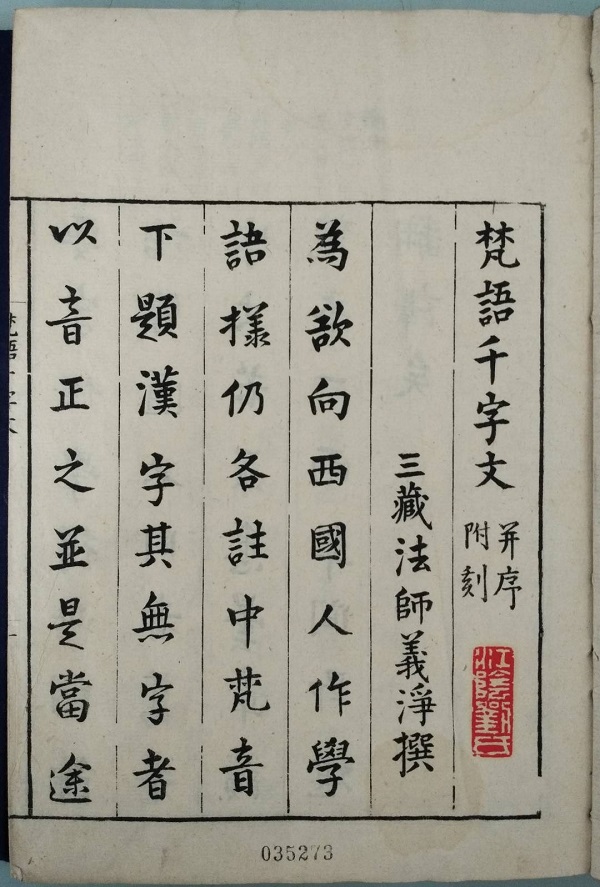 梵語千字文 并序 附刻
三藏法師義淨撰
為欲向西國人作學
語樣仍各註中梵音
下題漢字其無字者
以音正之並是當途
江陰劉氏
035273